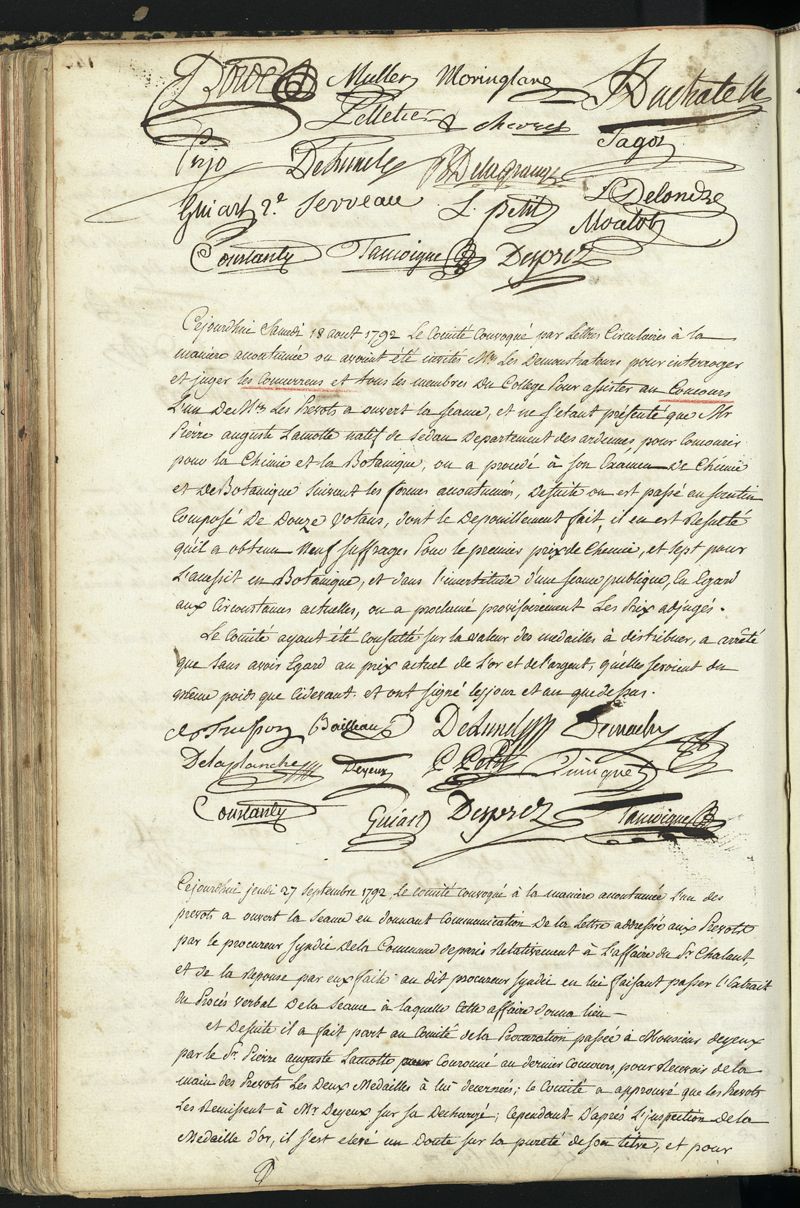 Bordé Muller Moringlane Duchatelle
Pelletier & chevret
Pujo Dehunely B Delagrange Jagot
Guiart 2e. Serveau L. petit S Delondre
Moutot
Constanty Tauvigue Desprez
Cejourdhui Samedi 18 aout 1792 Le Comité Convoqué par Lettres Circulaires à la
maniere accoutumée ou avoient été invités Mrs Les Demonstrateurs pour interroger
et juger les Concurrens et tous les membres Du College pour assister au Concours
L'un De Mrs Les Prevots a ouvert la seance, et ne s'etant présenté que Mr
Pierre auguste Lamotte natif de sedan Departement des ardennes, pour Concourir
pour la Chimie et la Botanique, on a procedé à son Examen De Chimie
et De Botanique suivant les formes accoutumées, Desuite on est passé au scrutin
Composé De Douze Votans, dont le Depouillement fait, il en est Resulté
qu'il a obtenu Neuf suffrages pour le premier prix de Chemie, et sept pour
L'accessit en Botanique, et dans l'incertitude d'une seance publique, En Egard
aux Circonstances actuelles, on a proclamé provisoirement Les Prix adjugés.
Le Comité ayant été Consulté sur la valeur des medailles à distribuer, a arrêté
que sans avoir Egard au prix actuel de L'or et de l'argent, qu'elles seroient du
même poids que cidevant. et ont signé les jour et an que dessus.
Trusson Bailleau Dehunely Demachy
Delaplanche Deyeux P Petit
Constanty Guiart Desprez Tauvigue
Cejourdhui jeudi 27 septembre 1792, Le Comité convoqué à la maniere accoutumée L'un des
prevots a ouvert la seance en donnant Communication De la Lettre addressée aux Prevots
par le procureur syndic De la Commune de paris Relativement à L'affaire du Sr. Chalant
et de la reponse par eux faite au dit procureur syndic en lui faisant passer l'Extrait
du Procès verbal De la seance à laquelle Cette affaire donna lieu —
et Desuite il a fait part au Comité de la Procuration passée à Monsieur deyeux
par le Sr. Pierre auguste Lamotte Couronné au dernier Concours, pour Recevoir de la
main des Prevots Les Deux Medailles à lui decernées; le Comité a approuvé que les Prevots
Les Remissent à Mr Deyeux sur sa Decharge; Cependant D'après L'jnspection de la
Medaille d'or, il s'est elevé un Doute sur la pureté de son titre, et pour